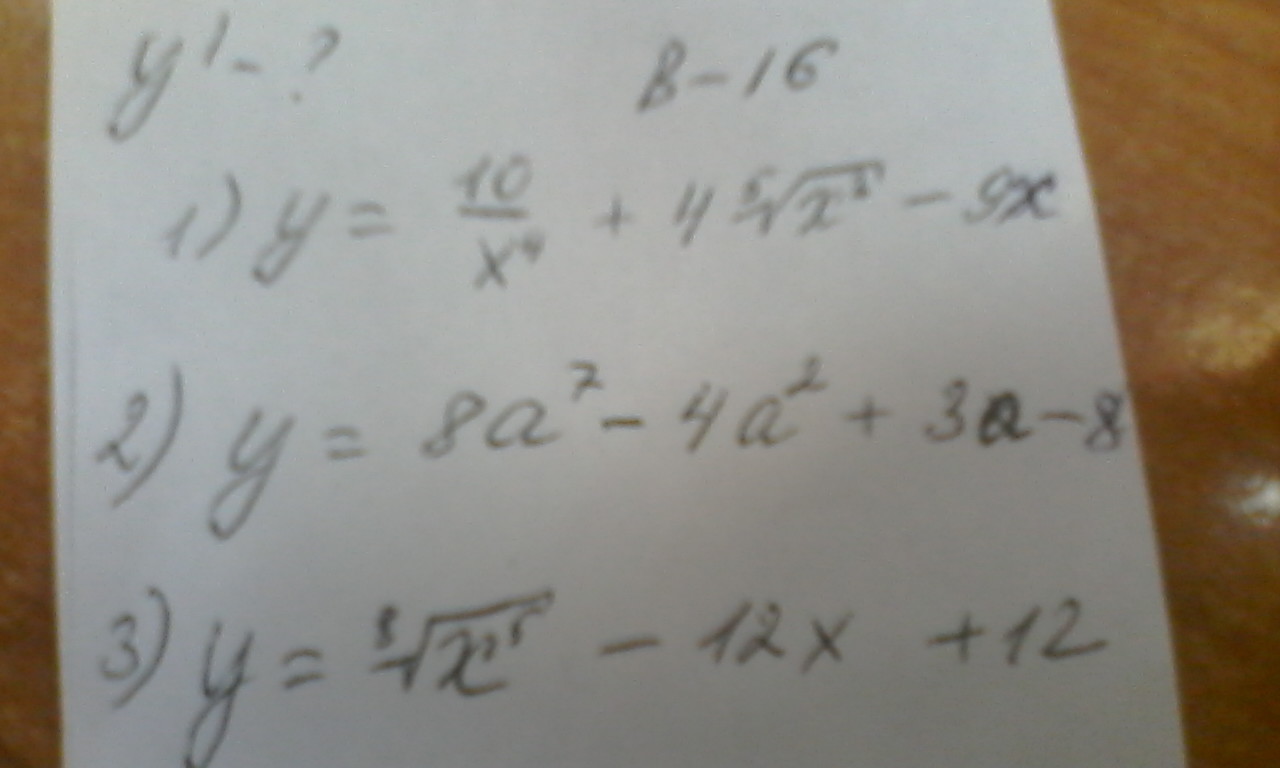 y' - ?
В-16
1) y = 10/x⁴ + 4 ⁵√x³ - 9x
2) y = 8a⁷ - 4a² + 3a - 8
3) y = ³√x⁵ - 12x + 12